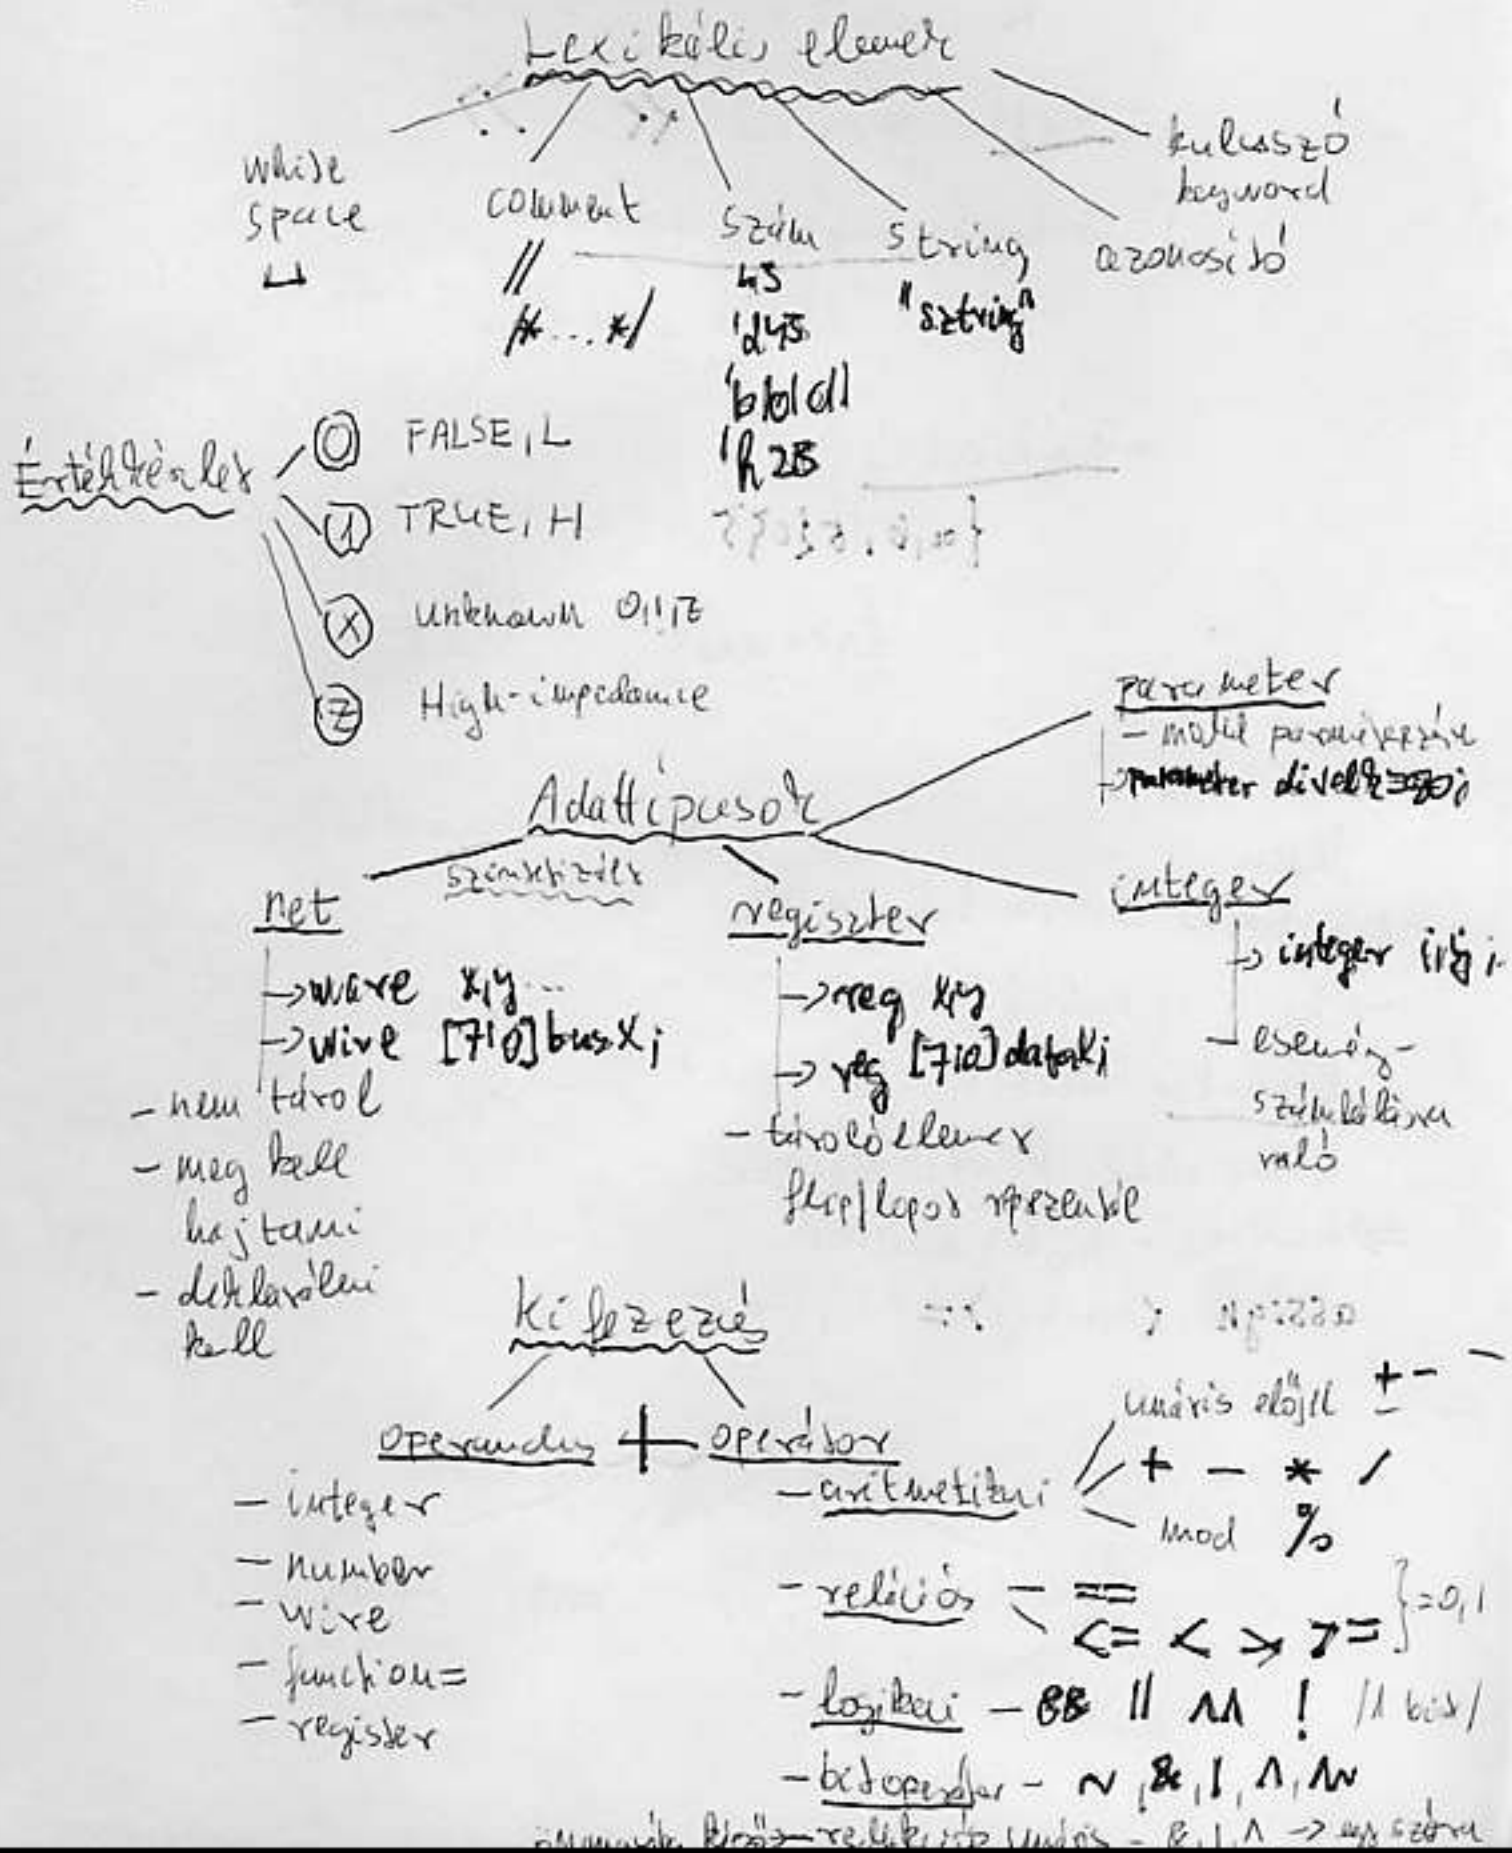 Lexikális elemek
white
space
⌴
comment
//
/*...*/
szám
45
'd45
'b101011
'h2B
string
"sztring"
azonosító
kulcsszó
keyword
Értékkészlet
0 FALSE, L
1 TRUE, H
X unknown 0,1,Z
Z High-impedance
Adattípusok
parameter
- modul
parameter
net
→
→ wire [7:0] busX;
- nem tárol
- meg kell
hajtani
- deklarálni
kell
regiszter
→ reg x,y
→ reg [7:0] dataX;
- tároló elemek
integer
→ integer i,j;
- esemény-
számlálásra
való
Kifejezés
operandus + operátor
- integer
- number
- wire
- function=
- register
- aritmetikai
unáris előjel + -
+ - * /
mod %
- relációs - ==
<= < > >=
}=0,1
- logikai - && || ^^ ! /1 bit/
- bitoperátor - ~, &, |, ^, ^~
unáris - &, |, ^ →